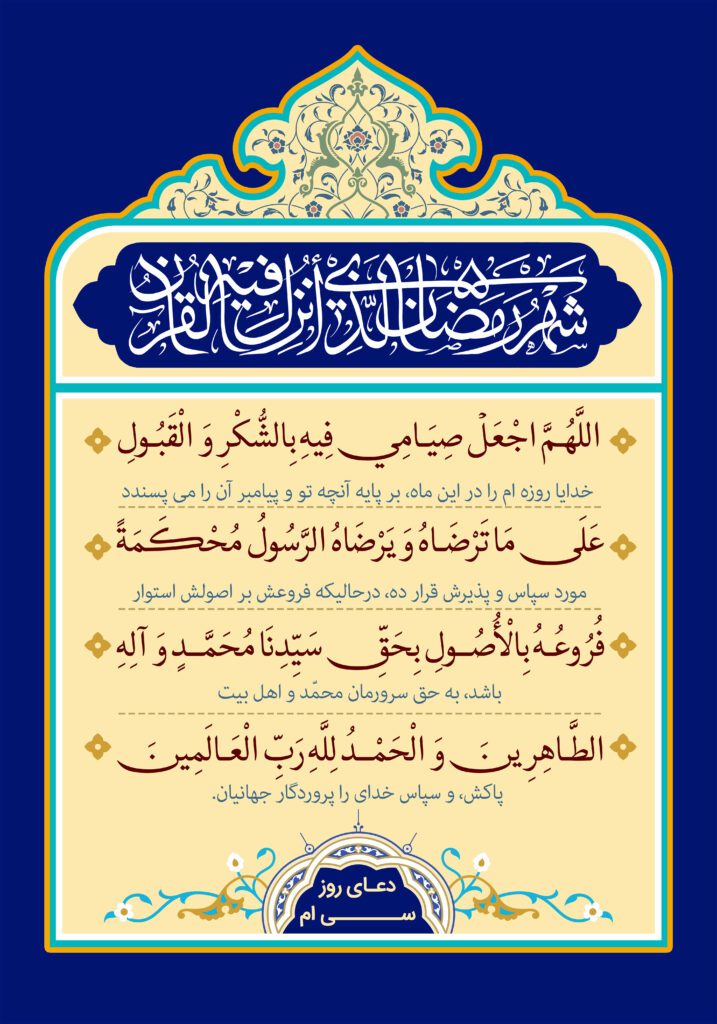 شَهْرُ رَمَضَانَ الَّذِي أُنْزِلَ فِيهِ الْقُرْآنُ
اللَّهُمَّ اجْعَلْ صِيَامِي فِيهِ بِالشُّكْرِ وَ الْقَبُولِ
خدایا روزه ام را در این ماه، بر پایه آنچه تو و پیامبر آن را می پسندد
عَلَى مَا تَرْضَاهُ وَ يَرْضَاهُ الرَّسُولُ مُحْكَمَةً
مورد سپاس و پذیرش قرار ده، درحالیکه فروعش بر اصولش استوار
فُرُوعُهُ بِالْأُصُولِ بِحَقِّ سَيِّدِنَا مُحَمَّدٍ وَ آلِهِ
باشد، به حق سرورمان محمّد و اهل بیت
الطَّاهِرِينَ وَ الْحَمْدُ لِلَّهِ رَبِّ الْعَالَمِينَ
پاکش، و سپاس خدای را پروردگار جهانیان.
دعای روز
سی ام